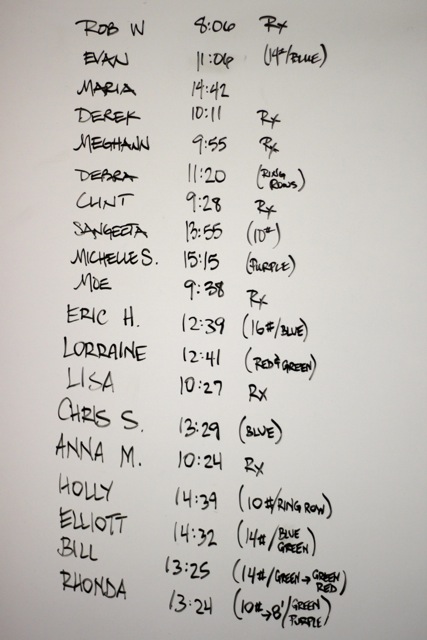 ROB W 8:06 Rx
EVAN 11:06 (14#/BLUE)
MARIA 14:42
DEREK 10:11 Rx
MEGHANN 9:55 Rx
DEBRA 11:20 (RING ROWS)
CLINT 9:28 Rx
SANGEETA 13:55 (10#)
MICHELLE S. 15:15 (PURPLE)
MOE 9:38 Rx
ERIC H. 12:39 (16#/BLUE)
LORRAINE 12:41 (RED & GREEN)
LISA 10:27 Rx
CHRIS S. 13:29 (BLUE)
ANNA M. 10:24 Rx
HOLLY 14:39 (10#/RING ROW)
ELLIOTT 14:32 (14#/BLUE GREEN)
BILL 13:25 (14#/GREEN → GREEN RED)
RHONDA 13:24 (10# → 8'/GREEN PURPLE)